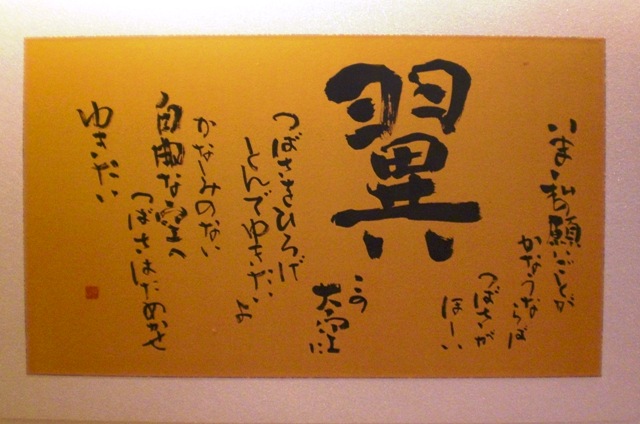 いま私の願いごとが
かなうならば
つばさが
ほーい
翼
この
大空に
つばさをひろげ
とんでゆきたいよ
かなしみのない
自由な空へ
つばさはためかせ
ゆきたい